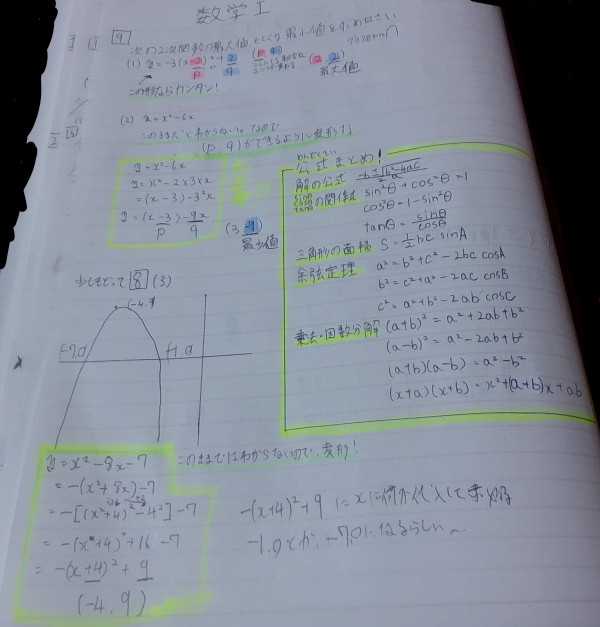 数学I
9
次の2次関数の最大値もしくは最小値を求めなさい
(1) y = -3(x-2)²+2
P q
最大値
この形ならカンタン!
(2) y = x²-6x
このままだとわからない。なので
(P, q)ができるように変形する
y = x²-6x
y = x²-2×3×x
= (x-3)-3²x
y = (x-3)-9x
P q
(3, -9)
最小値
公式まとめ!
解の公式 -b±√b²-4ac
2a
の関係式 sin²θ+cos²θ=1
cos²θ=1-sin²θ
tanθ = sinθ/cosθ
三角形の面積 S = 1/2 bc sinA
余弦定理 a² = b²+c²-2bc cosA
b² = c²+a²-2ac cosB
c² = a²+b²-2ab cosC
乗法・因数分解 (a+b)² = a²+2ab+b²
(a-b)² = a²-2ab+b²
(a+b)(a-b) = a²-b²
(x+a)(x+b) = x²+(a+b)x+ab
少しもどって 8 (3)
(-4.9)
(-7.0)
(-1.0)
y = x²-8x-7
このままではわからないので、変形!
= -(x²+8x)-7
= -[(x²+4)²-4²]-7
= -(x+4)²+16-7
= -(x+4)²+9
(-4, 9)
-(x+4)²+9 に xに何か代入して求める
-1.0とか、-7.0になるらしい〜